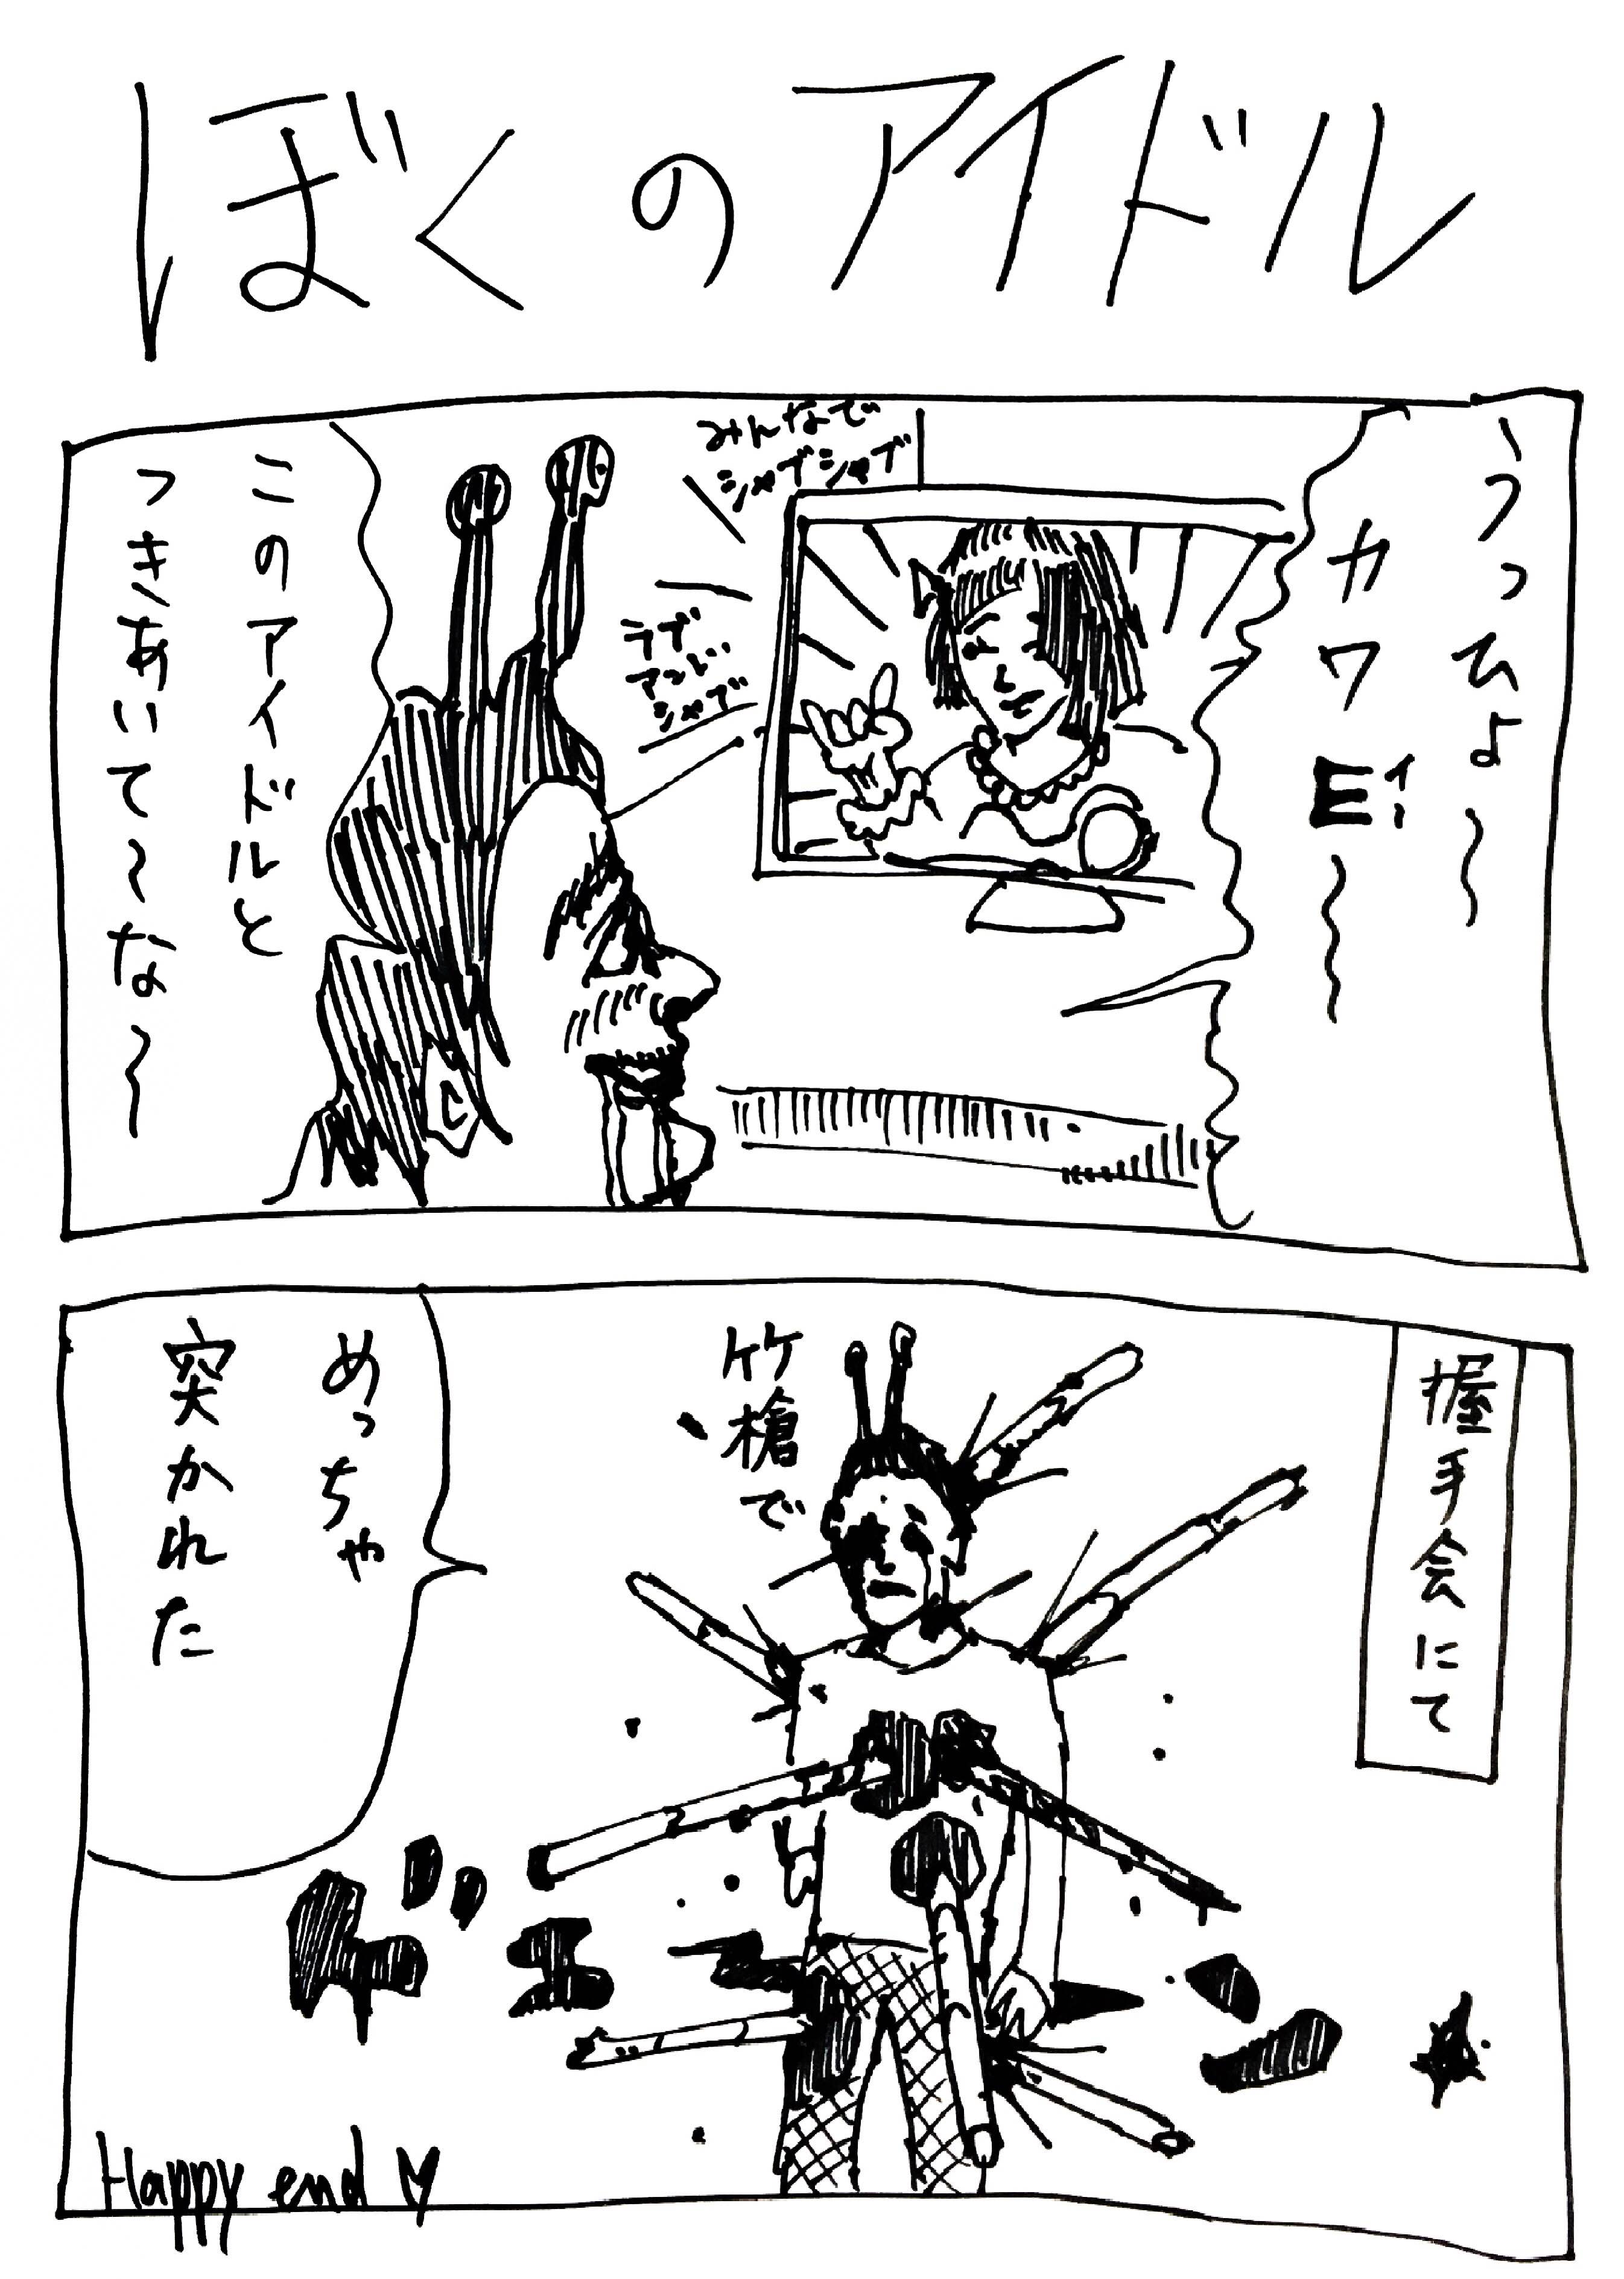 ぼくのアイドル
うっひょ〜
カワEイ〜〜
みんなで
シャブシャブ
ラブ
アンド
シャブ
このアイドルと
つきあいて〜な〜
握手会にて
竹槍で
めっちゃ
突かれた
ドシュッ
Happy end ♥